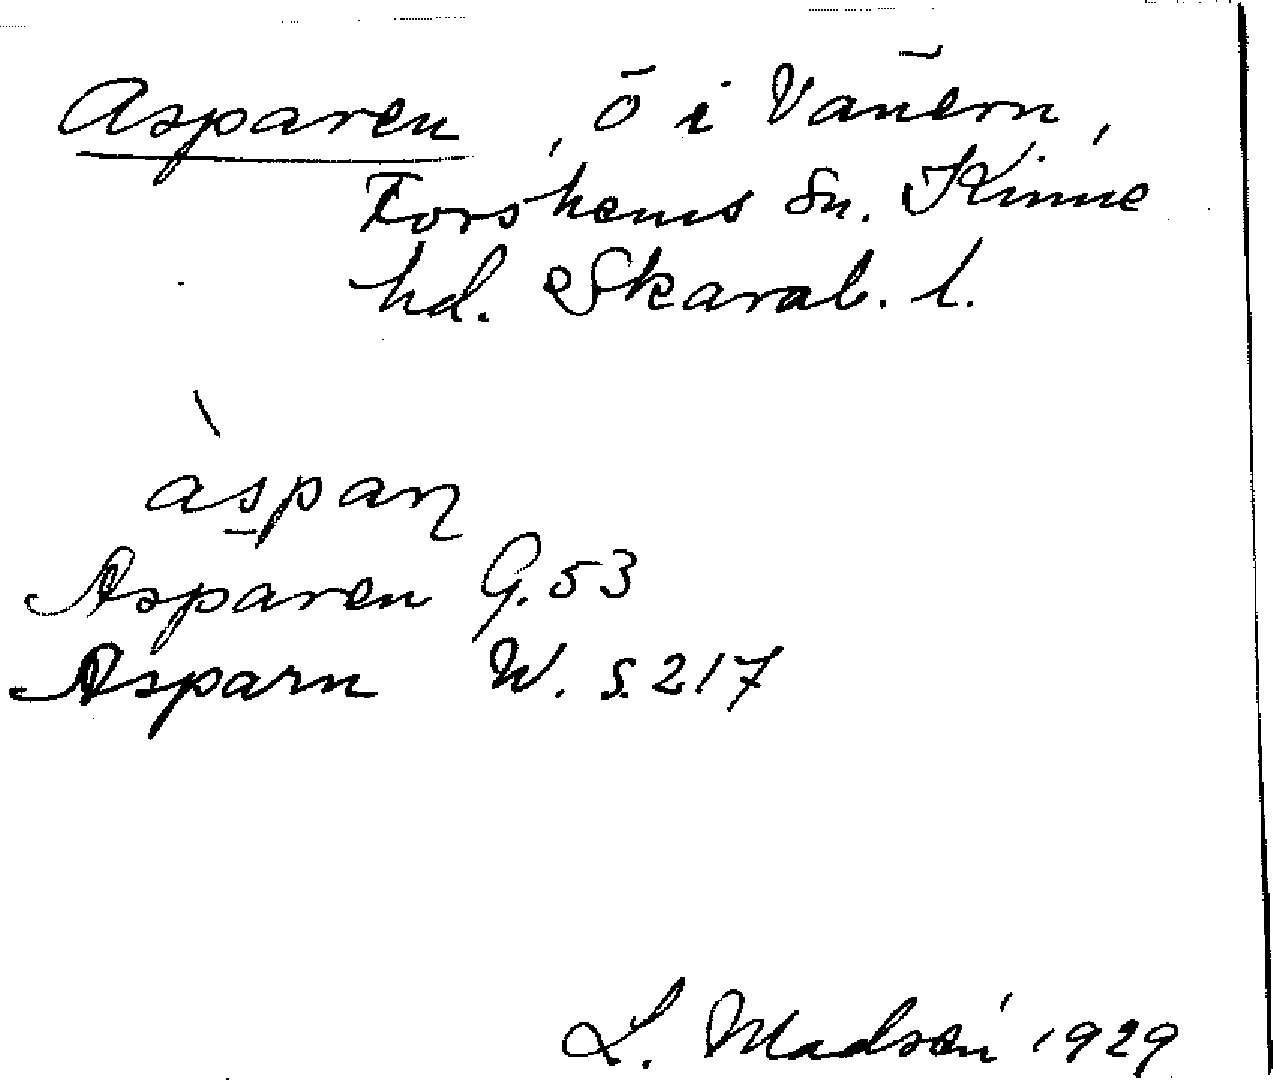 Asparen, ö i Vänern,
Forshems Sn. Kinne
hd. Skarab. l.
àspaɳ
Asparen G. 53
Asparn W. S. 217
L. Madsén 1929